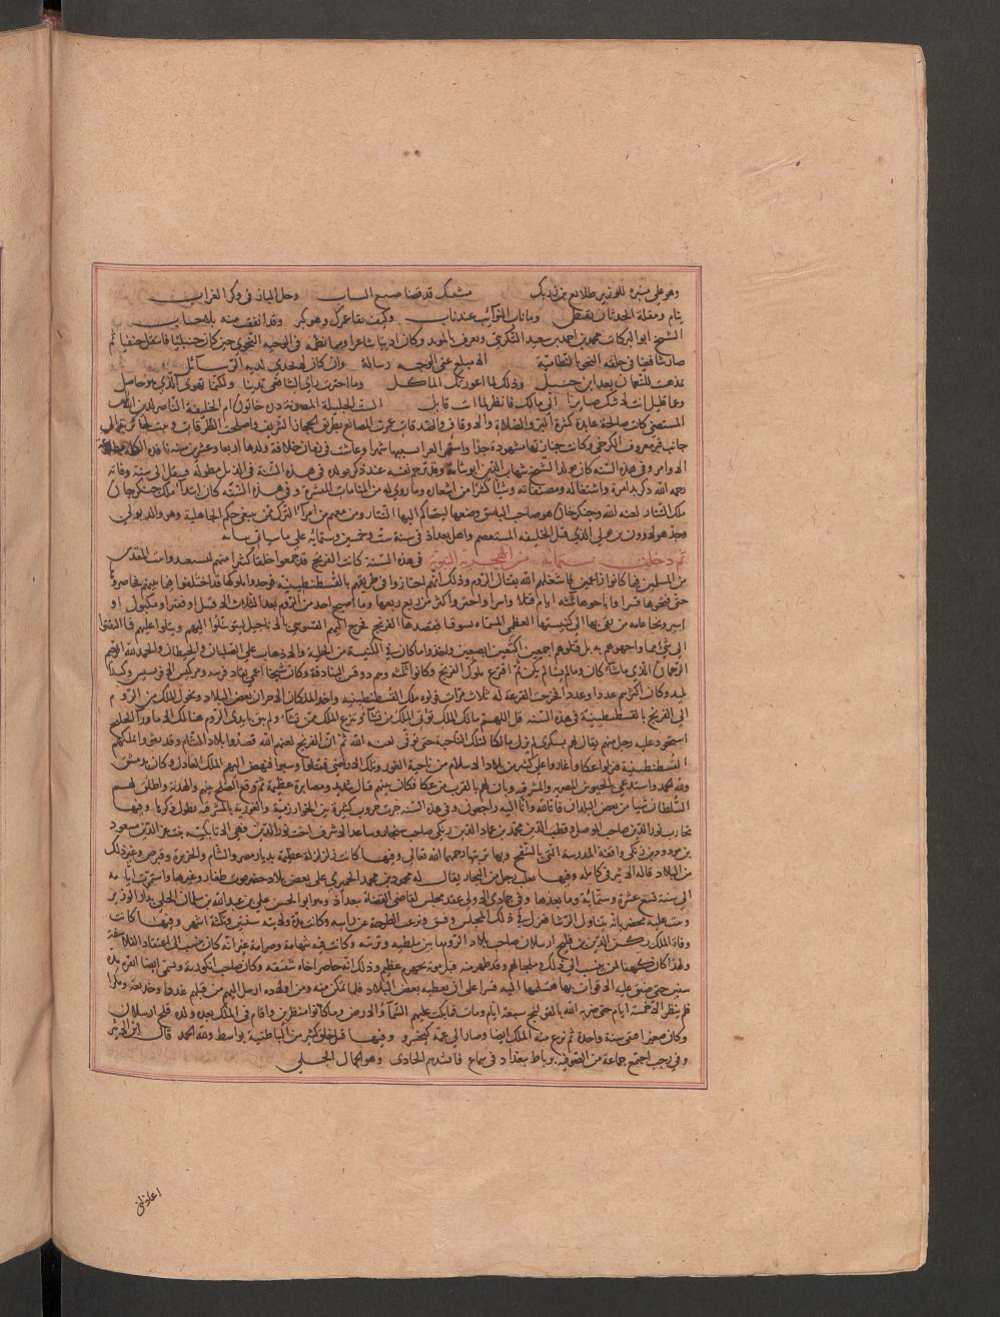 وهو على منبره للوزير طلائع بن رزيك مشيبك قد قضى صبغ الشباب وحل الباز في وكر الغراب
تنام ومقلة الحدثان يقظى وما ناب النوائب عنك ناب وكيف بقاء عمرك وهو كنز وقد انفقت منه بلا حساب
الشيخ ابو البركات محمد بن احمد بن سعيد التكريتي ويعرف بالمؤيد وكان اديبا شاعرا ومما نظمه في الوجيه النحوي حين كان حنبليا فانتقل حنفيا ثم
صار شافعيا في حلقة النحو بالنظامية الا مبلغ عني الوجيه رسالة وان كان لا تجدي لديه الرسائل
تمذهبت للنعمان بعد ابن حنبل وذلك لما اعوزتك المآكل وما اخترت رأي الشافعي تدينا ولكنما تهوى الذي هو حاصل
وعما قليل انت لا شك صاير الى مالك فانظر لما انت قايل الست الجليلة المصونة خاتون ام الخليفة الناصر لدين الله
المستضي كانت صالحة عابدة كثيرة البر والصلاة والاوقاف والصدقات عمرت المصانع بطريق الحجاز الشريف واصلحت الطرقات
جانب قبر معروف الكرخي وكانت جنازتها مشهودة جدا واستمر العزاء بسببها شهرا وعاشت في زمان خلافة ولدها اربعا وعشرين سنة نافذة الكلمة مطاعة
الاوامر وفي هذه السنة كان مولد الشيخ شهاب الدين ابو شامة وقد ترجم نفسه عند ذكر مولده في هذه السنة في الذيل مطولة فينقل الى سنة وفاته
رحمه الله ذكر بدء امره واشتغاله ومصنفاته وشيا كثيرا من اشعاره وما روي له من المنامات المبشرة وفي هذه السنة كان ابتداء ملك جنكزخان
ملك التتار لعنه الله وجنكزخان هو صاحب الياسق وضعها ليتحاكم اليها التتار ومن معهم من امراء الترك ممن يبتغي حكم الجاهلية وهو والد تولي
وجد هولاكو بن تولي الذي قتل الخليفة المستعصم واهل بغداد في سنة ست وخمسين وستمائة على ما سياتي بيانه
ثم دخلت سنة ستمائة من الهجرة النبوية في هذه السنة كانت الفرنج قد جمعوا خلقا كثيرا منهم ليستعيدوا بيت المقدس
من المسلمين بما كانوا زاعمين فاشغلهم الله بقتال الروم وذلك انهم اجتازوا في طريقهم بالقسطنطينية فوجدوا ملوكها قد اختلفوا فيما بينهم فحاصروها
حتى فتحوها قسرا واباحوها ثلثة ايام قتلا واسرا واحترق اكثر من ربعها وما اصبح احد من الروم بعد الثلاث الا قتيل او فقير او مكبول او
اسير ولجا عامة من بقي بها الى كنيستها العظمى المسماة بسوفيا فقصدها الفرنج فخرج اليهم القسوس بالاناجيل ليتوسلوا اليهم ويتلوا عليهم فما التفتوا
الى شيء مما واجهوهم به بل قتلوهم اجمعين اكتعين ابصعين واخذوا ما كان في الكنيسة من الحلية والاذهاب على الصلبان والحيطان والحمد لله الرحيم
الرحمان الذي ما شاء كان وما لم يشأ لم يكن ثم اقترع ملوك الفرنج وكانوا ثلثة وهم دوقس البنادقة وكان شيخا اعمى يقاد فرسه ومركيس الافرنسيس وكندا
بلند وكان اكثرهم عددا وعددا فخرجت القرعة له ثلاث مرات فولوه ملك القسطنطينية واخذ الملكان الاخران بعض البلاد وتحول الملك من الروم
الى الفرنج بالقسطنطينية في هذه السنة قل اللهم مالك الملك توتي الملك من تشاء وتنزع الملك ممن تشاء ولم يبق بايدي الروم هنالك الا ما وراء الخليج
استحوذ عليه رجل منهم يقال له يسكري لم يزل مالكا لتلك الناحية حتى توفي لعنه الله ثم ان الفرنج لعنهم الله قصدوا بلاد الشام وقد تقووا بملكهم
القسطنطينية فنزلوا عكا واغاروا على كثير من بلاد الاسلام من ناحية الغور وتلك الاراضي فقتلوا وسبوا فنهض اليهم الملك العادل وكان بدمشق
ولله الحمد واستدعى بالجيوش المصرية والمشرقية ونازلهم بالقرب من عكا فكان بينهم قتال شديد ومصابرة عظيمة ثم وقع الصلح بينهم والهدنة واطلق لهم
السلطان شيا من بعض البلدان فانا لله وانا اليه راجعون وفي هذه السنة جرت حروب كثيرة بين الخوارزمية والغورية بالمشرق يطول ذكرها وفيها
تحارب نور الدين صاحب الموصل وقطب الدين محمد بن عماد الدين زنكي صاحب سنجار وساعد الاشرف نور الدين
بن مودود بن زنكي واقفة المدرسة التي بالسفح وبها تربتها رحمها الله تعالى وفيها كانت زلزلة عظيمة بديار مصر والشام والجزيرة وقبرص وغير ذلك
من البلاد قاله ابن الاثير في كامله وفيها تغلب رجل من التجار يقال له محمود بن محمد الحميري على بعض بلاد حضرموت ظفار وغيرها واستمرت ايامه
الى سنة تسع عشرة وستمائة وما بعدها وفي جمادى الاولى عقد مجلس لقاضي القضاة ببغداد وهو ابو الحسن علي بن عبد الله بن سلمان الحلي بدار الوزير
وثبت عليه محضر بانه يتناول الرشا فعزل في ذلك المجلس وفسق ونزعت الطرحة عن راسه وكانت مدة ولايته سنتين وثلثة اشهر وفيها كانت
وفاة الملك ركن الدين بن قلج ارسلان صاحب بلاد الروم ما بين ملطية وقونية وكانت فيه شهامة وصرامة غير انه كان ينسب الى اعتقاد الفلاسفة
ولهذا كان كهفا لمن ينسب الى ذلك وملجا لهم وقد ظهر منه قبل موته تجهرم عظيم وذلك انه حاصر اخاه شقيقه وكان صاحب انكورية وتسمى ايضا انقرة مدة
سنين حتى ضيق عليه الاقوات بها فسلمها اليه قسرا على ان يعطيه بعض البلاد فلما تمكن منه ومن اولاده ارسل اليهم من قتلهم غدرا وخديعة ومكرا
فلم ينظر الا خمسة ايام حتى ضربه الله بالقولنج سبعة ايام ومات فما بكت عليهم السماء والارض وما كانوا منظرين واقام في الملك بعده ولده قلج ارسلان
وكان صغيرا فبقي سنة واحدة ثم نزع منه الملك ايضا وصار الى عمه كيخسرو وفيها قتل خلق كثير من الباطنية بواسط ولله الحمد قال ابن الاثير
وفي رجب اجتمع جماعة من الصوفية برباط ببغداد في سماع فانشدهم الحادي وهو الجمال الحلي
اعاذلتي